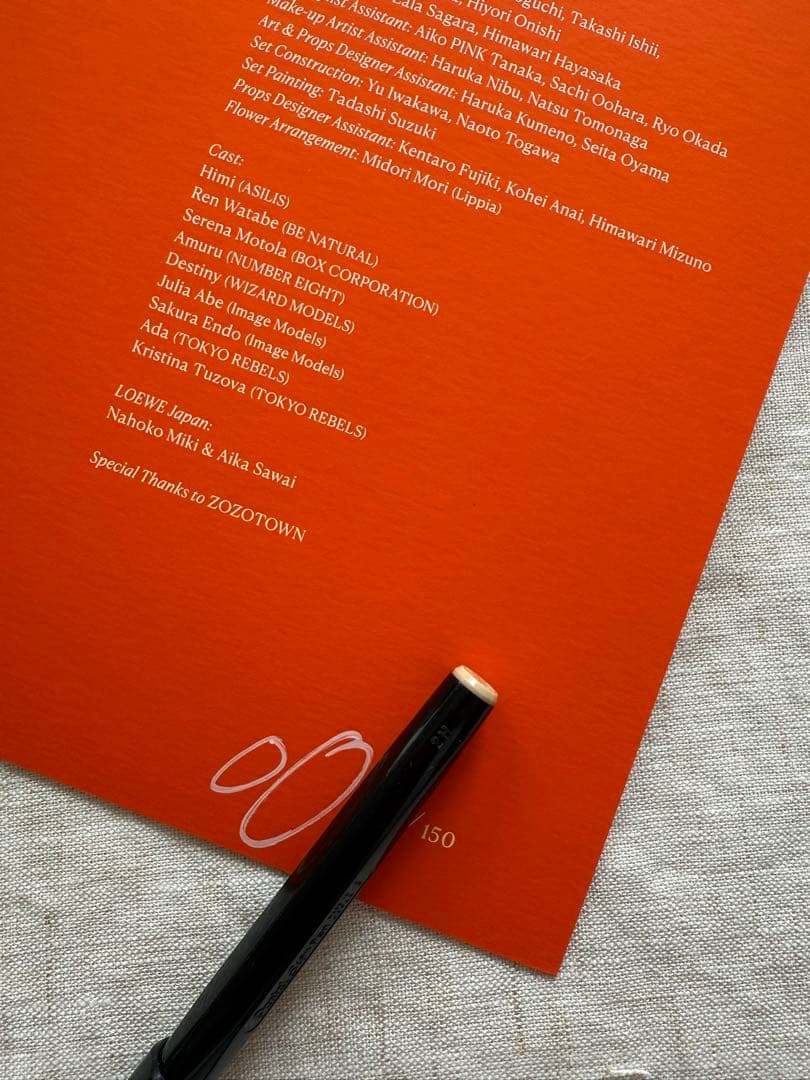 Takashi Ishii,
Lala Sagara, Hiyori Onishi
Assistant: Aiko PINK Tanaka, Himawari Hayasaka
Make-up Artist Assistant: Haruka Nibu, Sachi Oohara, Ryo Okada
Art & Props Designer Assistant: Haruka Kumeno, Natsu Tomonaga
Set Construction: Yu Iwakawa, Naoto Togawa, Seita Oyama
Set Painting: Tadashi Suzuki
Props Designer Assistant: Kentaro Fujiki, Kohei Anai, Himawari Mizuno
Flower Arrangement: Midori Mori (Lippia)
Cast:
Himi (ASILIS)
Ren Watabe (BE NATURAL)
Serena Motola (BOX CORPORATION)
Amuru (NUMBER EIGHT)
Destiny (WIZARD MODELS)
Julia Abe (Image Models)
Sakura Endo (Image Models)
Ada (TOKYO REBELS)
Kristina Tuzova (TOKYO REBELS)
LOEWE Japan:
Nahoko Miki & Aika Sawai
Special Thanks to ZOZOTOWN
00
/150